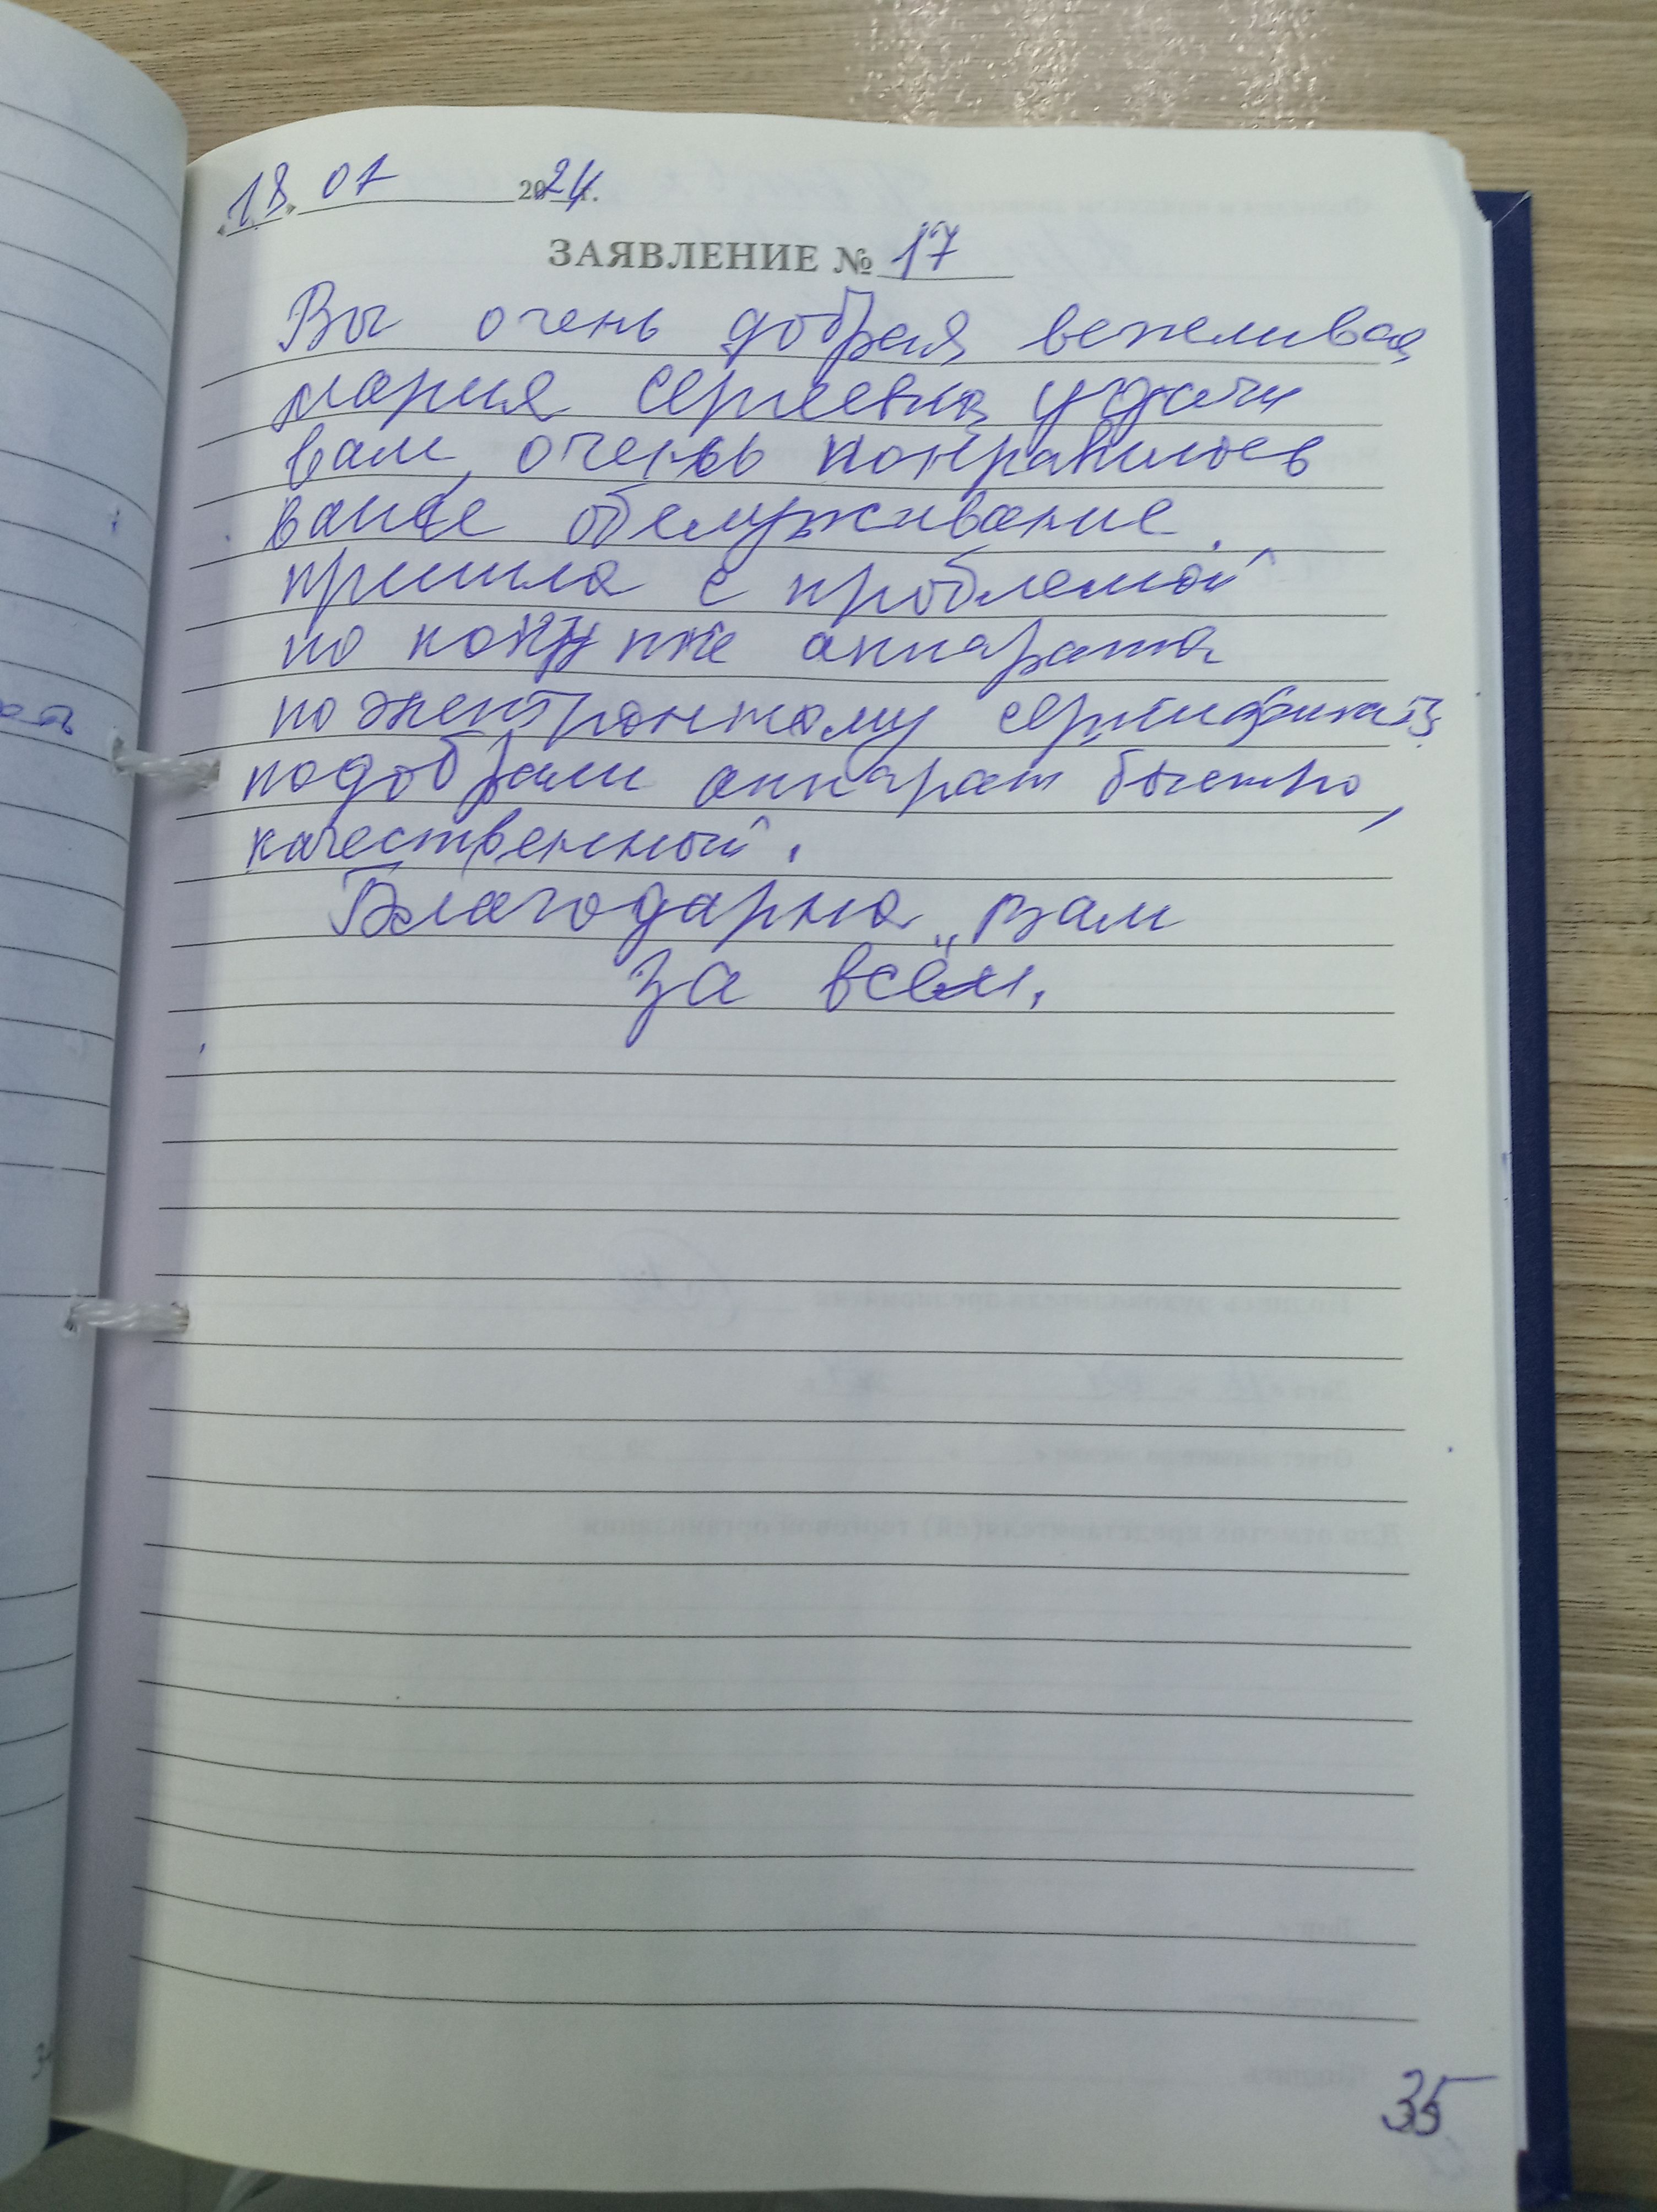 «18» 01 2024 г.
ЗАЯВЛЕНИЕ № 17
Вы очень добрая, вежеливая
мария сергеевна, удачи
вам, очень понравилось
ваше обслуживание.
пришла с проблемой
по покупке аппарата
по электронному сертификату,
подобрали аппарат быстро,
качественный.
Благодарна, вам
за всём.
35